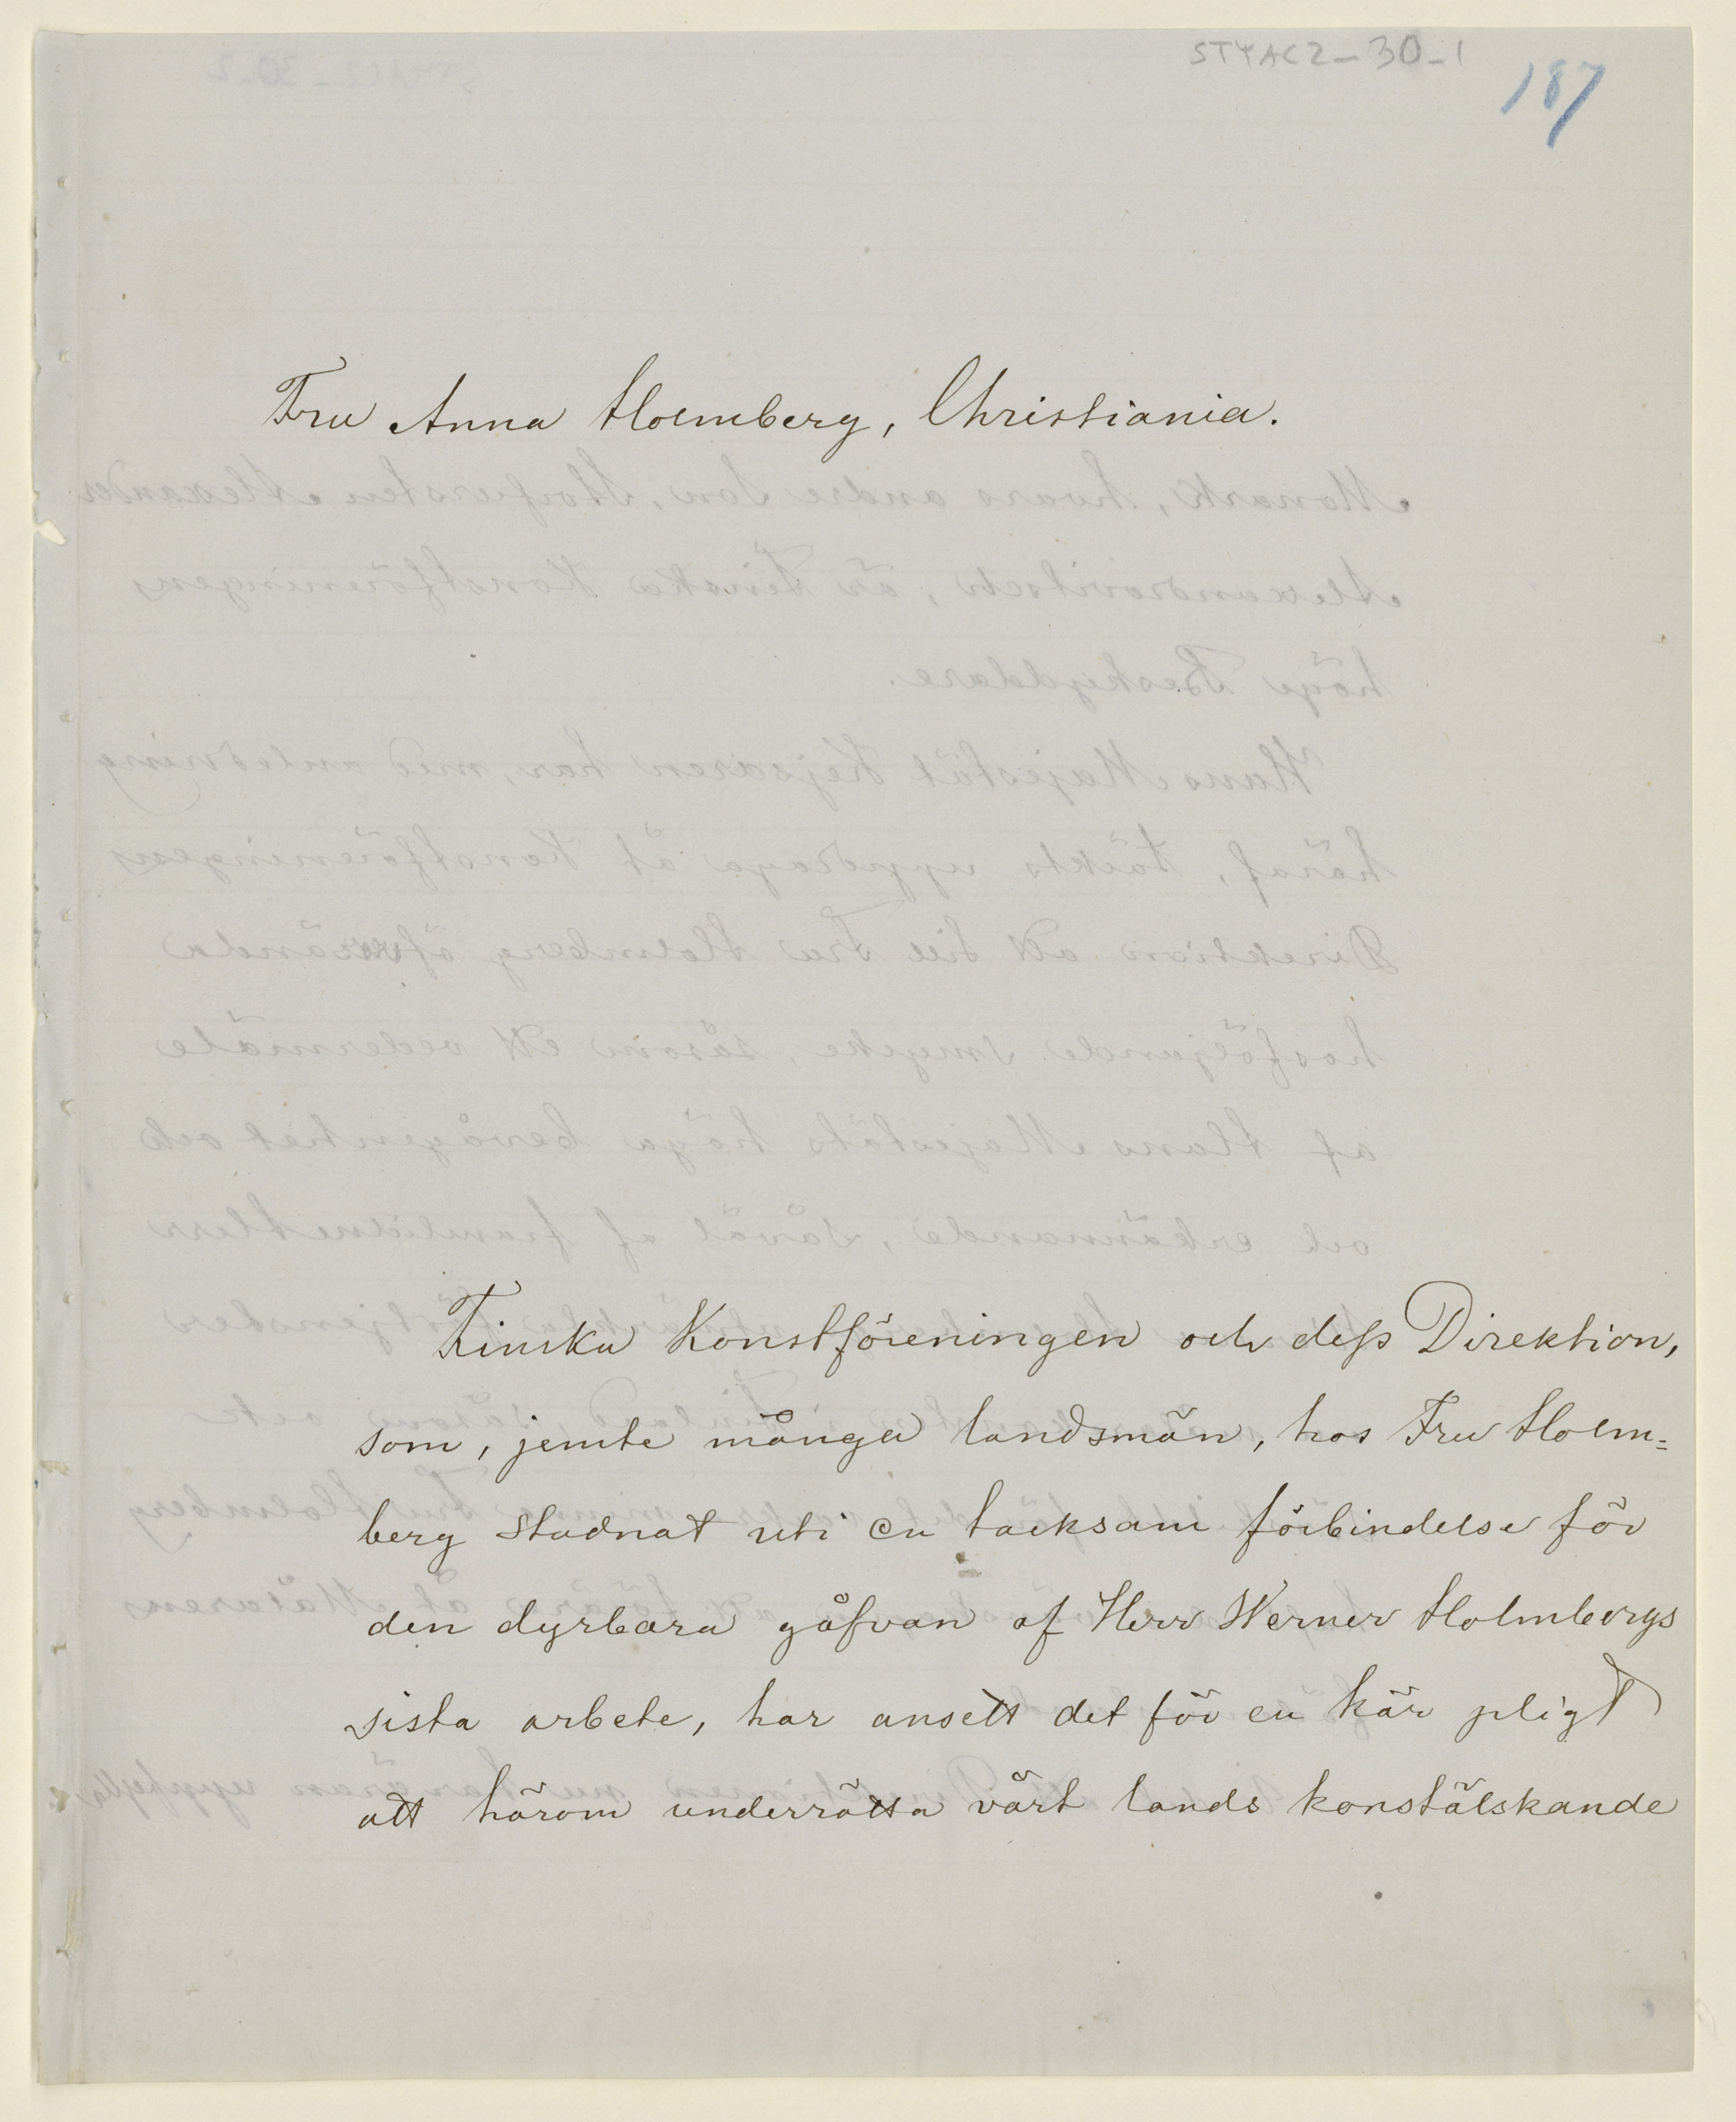 STYAC2-30-1
187
Fru Anna Holmberg, Christiania.
Finska Konstföreningen och dess Direktion,
som, jemte många landsmän, hos Fru Holm=
berg stadnat uti en tacksam förbindelse för
den dyrbara gåfvan af Herr Werner Holmbergs
sista arbete, har ansett det för en kär pligt
att härom underrätta vårt lands konstälskande